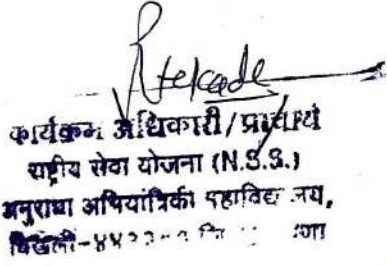 कार्यक्रम अधिकारी/प्राचार्य
राष्ट्रीय सेवा योजना (N.S.S.)
अनुराधा अभियांत्रिकी महाविद्यालय,
चिखली-४४३२